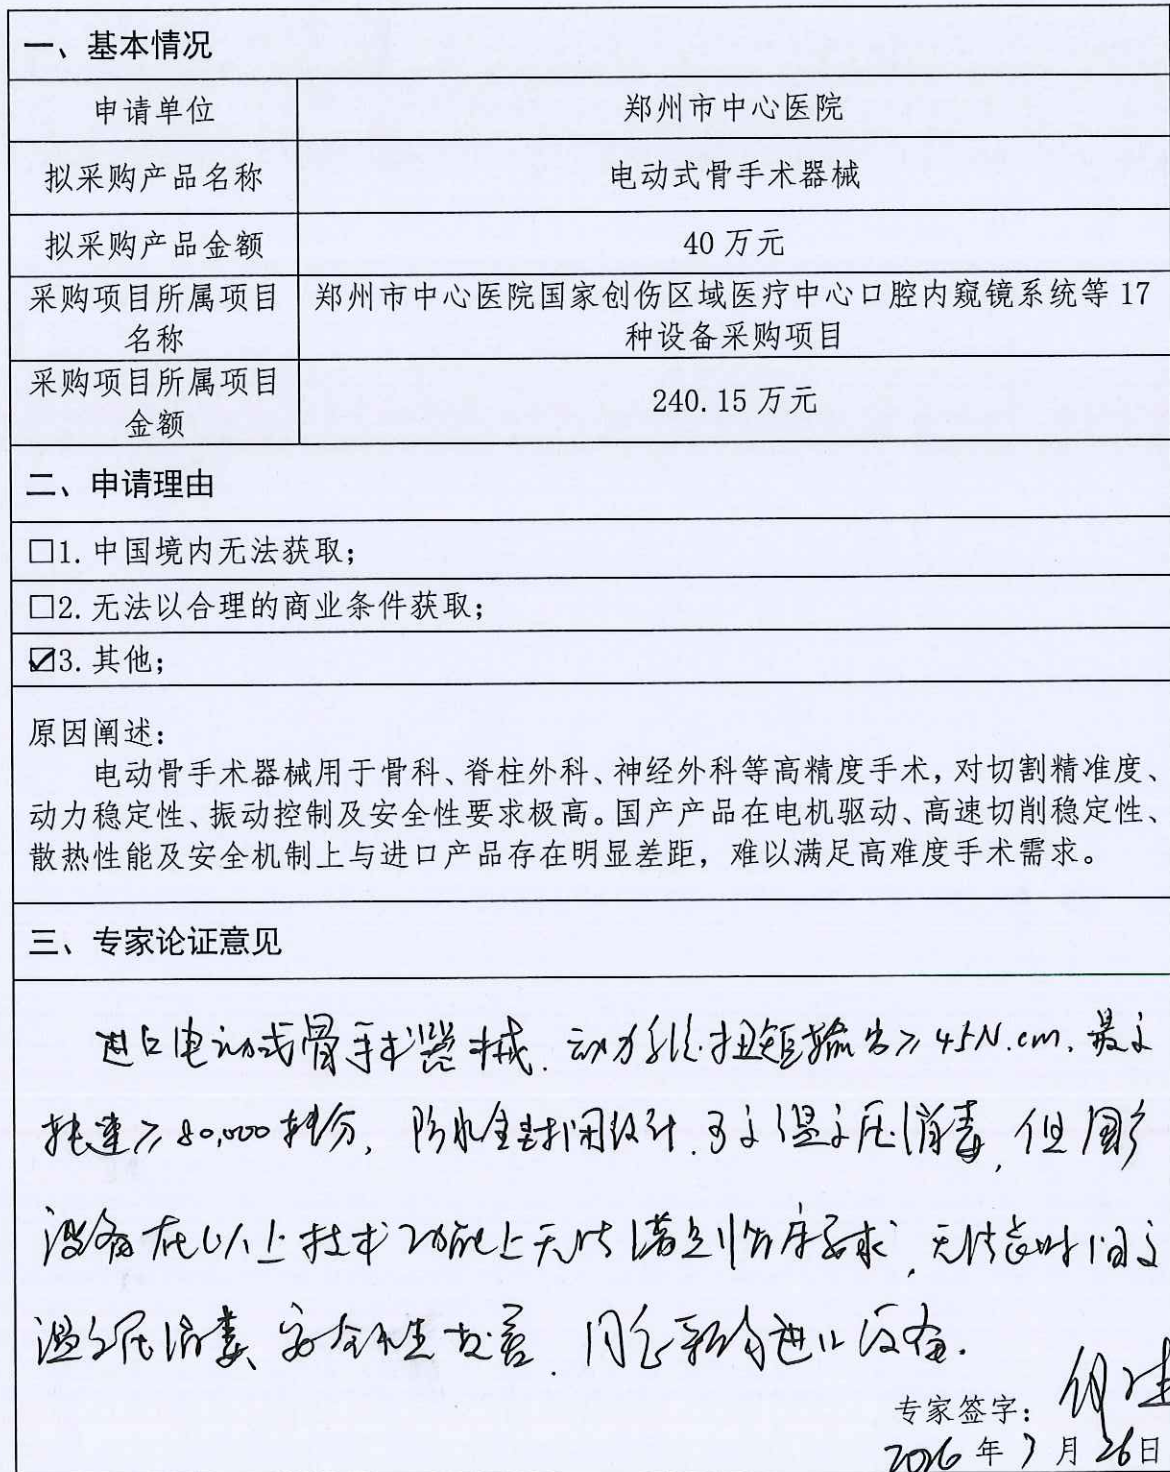 一、基本情况
申请单位
郑州市中心医院
拟采购产品名称
电动式骨手术器械
拟采购产品金额
40万元
采购项目所属项目
名称
郑州市中心医院国家创伤区域医疗中心口腔内窥镜系统等17
种设备采购项目
采购项目所属项目
金额
240.15万元
二、申请理由
□1.中国境内无法获取;
□2.无法以合理的商业条件获取;
☑3.其他;
原因阐述:
电动骨手术器械用于骨科、脊柱外科、神经外科等高精度手术,对切割精准度、
动力稳定性、振动控制及安全性要求极高。国产产品在电机驱动、高速切削稳定性、
散热性能及安全机制上与进口产品存在明显差距，难以满足高难度手术需求。
三、专家论证意见
进口电动式骨手术器械.动力系统扭矩输出≥45N.cm.最高
转速≥80,000转/分,防水全封闭设计.可高温高压消毒,但国产
设备在以上技术功能上无法满足临床要求,无法长时间高
温高压消毒、安全性较差.同意采购进口设备.
专家签字:
2026年7月26日